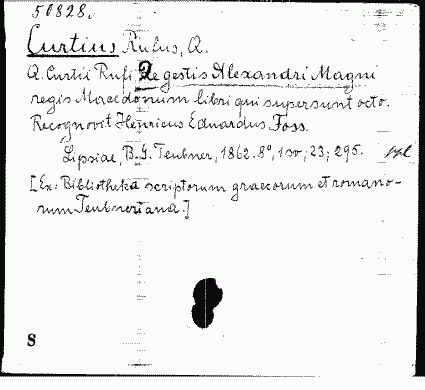 50828.
Curtius Rufus, Q.
Q. Curtii Rufi De gestis Alexandri Magni
regis Macedonum libri qui supersunt octo.
Recognovit Henricus Eduardus Foss.
Lipsiae, B. G. Teubner, 1862. 8°, 1 sv; 23; 295.
[Ex: Bibliotheka scriptorum graecorum et romano-
rum Teubneriana.]
S